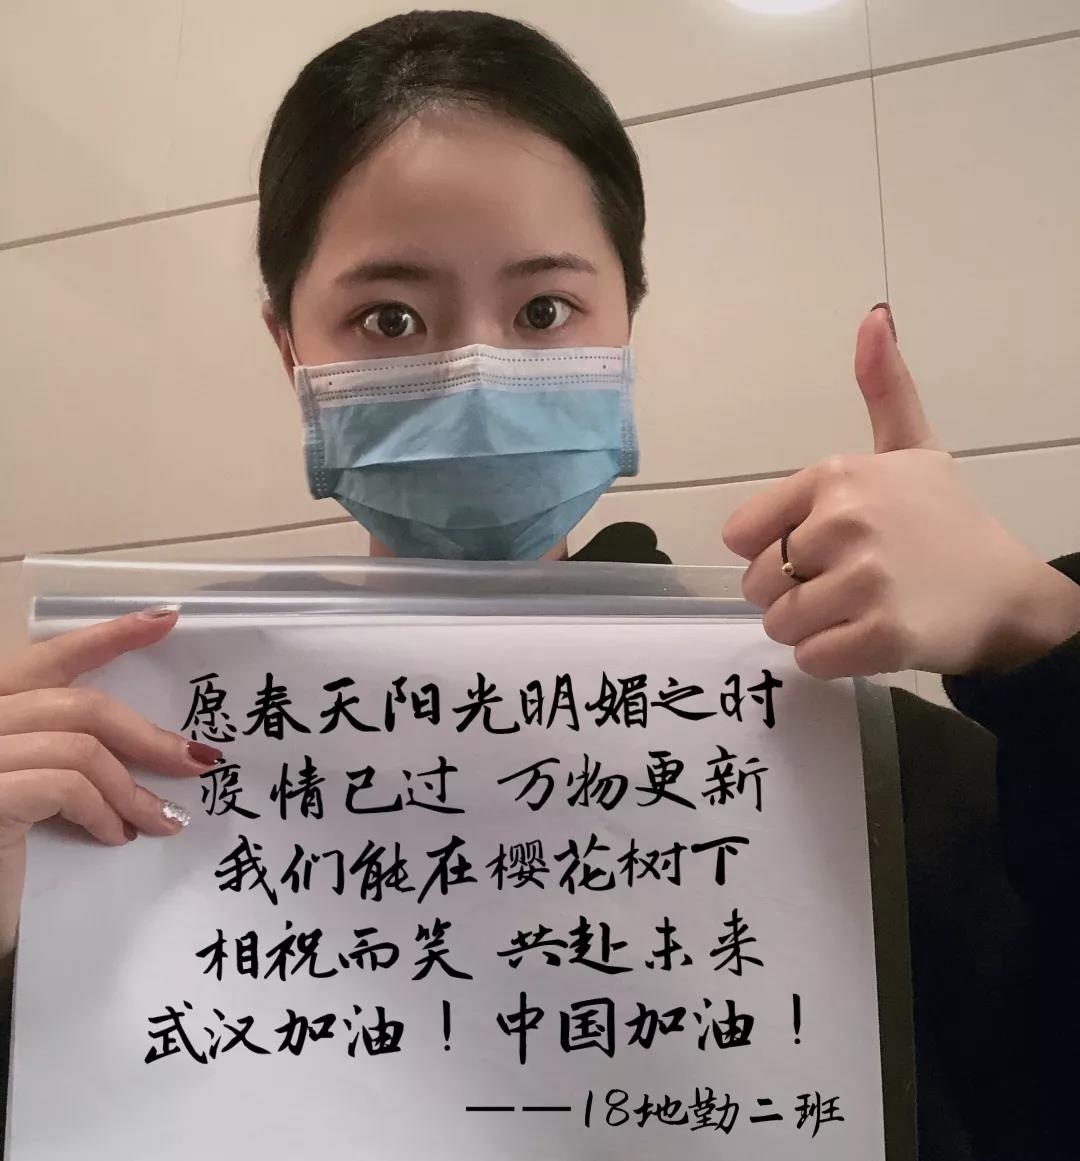 愿春天阳光明媚之时
疫情已过 万物更新
我们能在樱花树下
相祝而笑 共赴未来
武汉加油！中国加油！
——18地勤二班